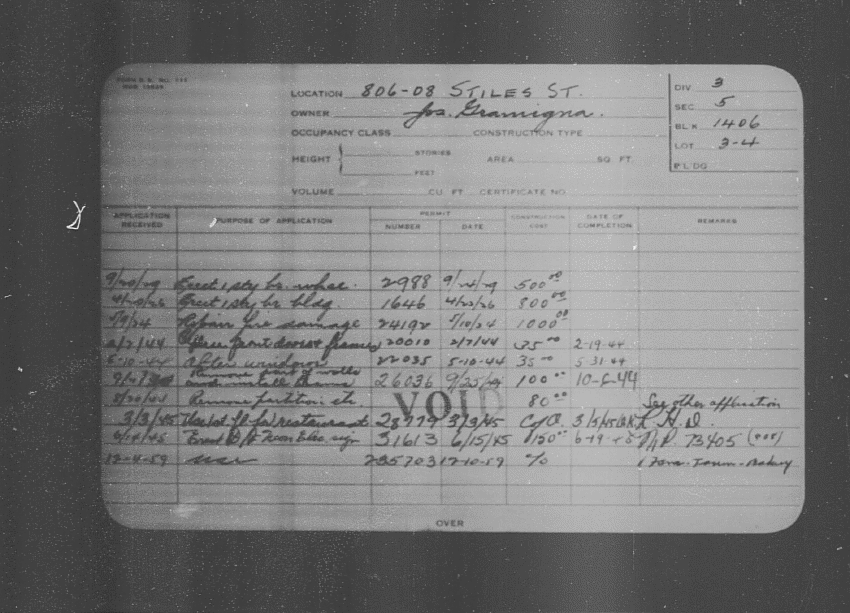 LOCATION 806-08 STILES ST.
OWNER Jos. Gramigna.
OCCUPANCY CLASS CONSTRUCTION TYPE
HEIGHT STORIES AREA SQ. FT.
FEET
VOLUME CU. FT. CERTIFICATE NO.
DIV 3
SEC 5
BL'K 1406
LOT 3-4
P'L'DG
APPLICATION RECEIVED PURPOSE OF APPLICATION PERMIT NUMBER DATE CONSTRUCTION COST DATE OF COMPLETION REMARKS
9/20/29 Erect 1 sty br. whse. 2988 9/24/29 500.00
4/20/26 Erect 1 sty br bldg. 1646 4/23/26 800.00
Repair fire damage 24192 7/10/24 1000.00
2/2/44 front doors & frames 20010 2/7/44 2-19-44
5-10-44 Alter windows 22035 5-10-44 35 5 31 44
Remove part of walls
and install beams 26036 9/25/44 100.00 10-6-44
Remove partition etc. 80.00 See other application
VOID
3/3/45 restaurant 28779 3/3/45 3/5/45
6/14/45 Erect Neon Elec. sign 31613 6/15/45 150 73405
12-4-59 use 235703 12-10-59 Bakery
OVER